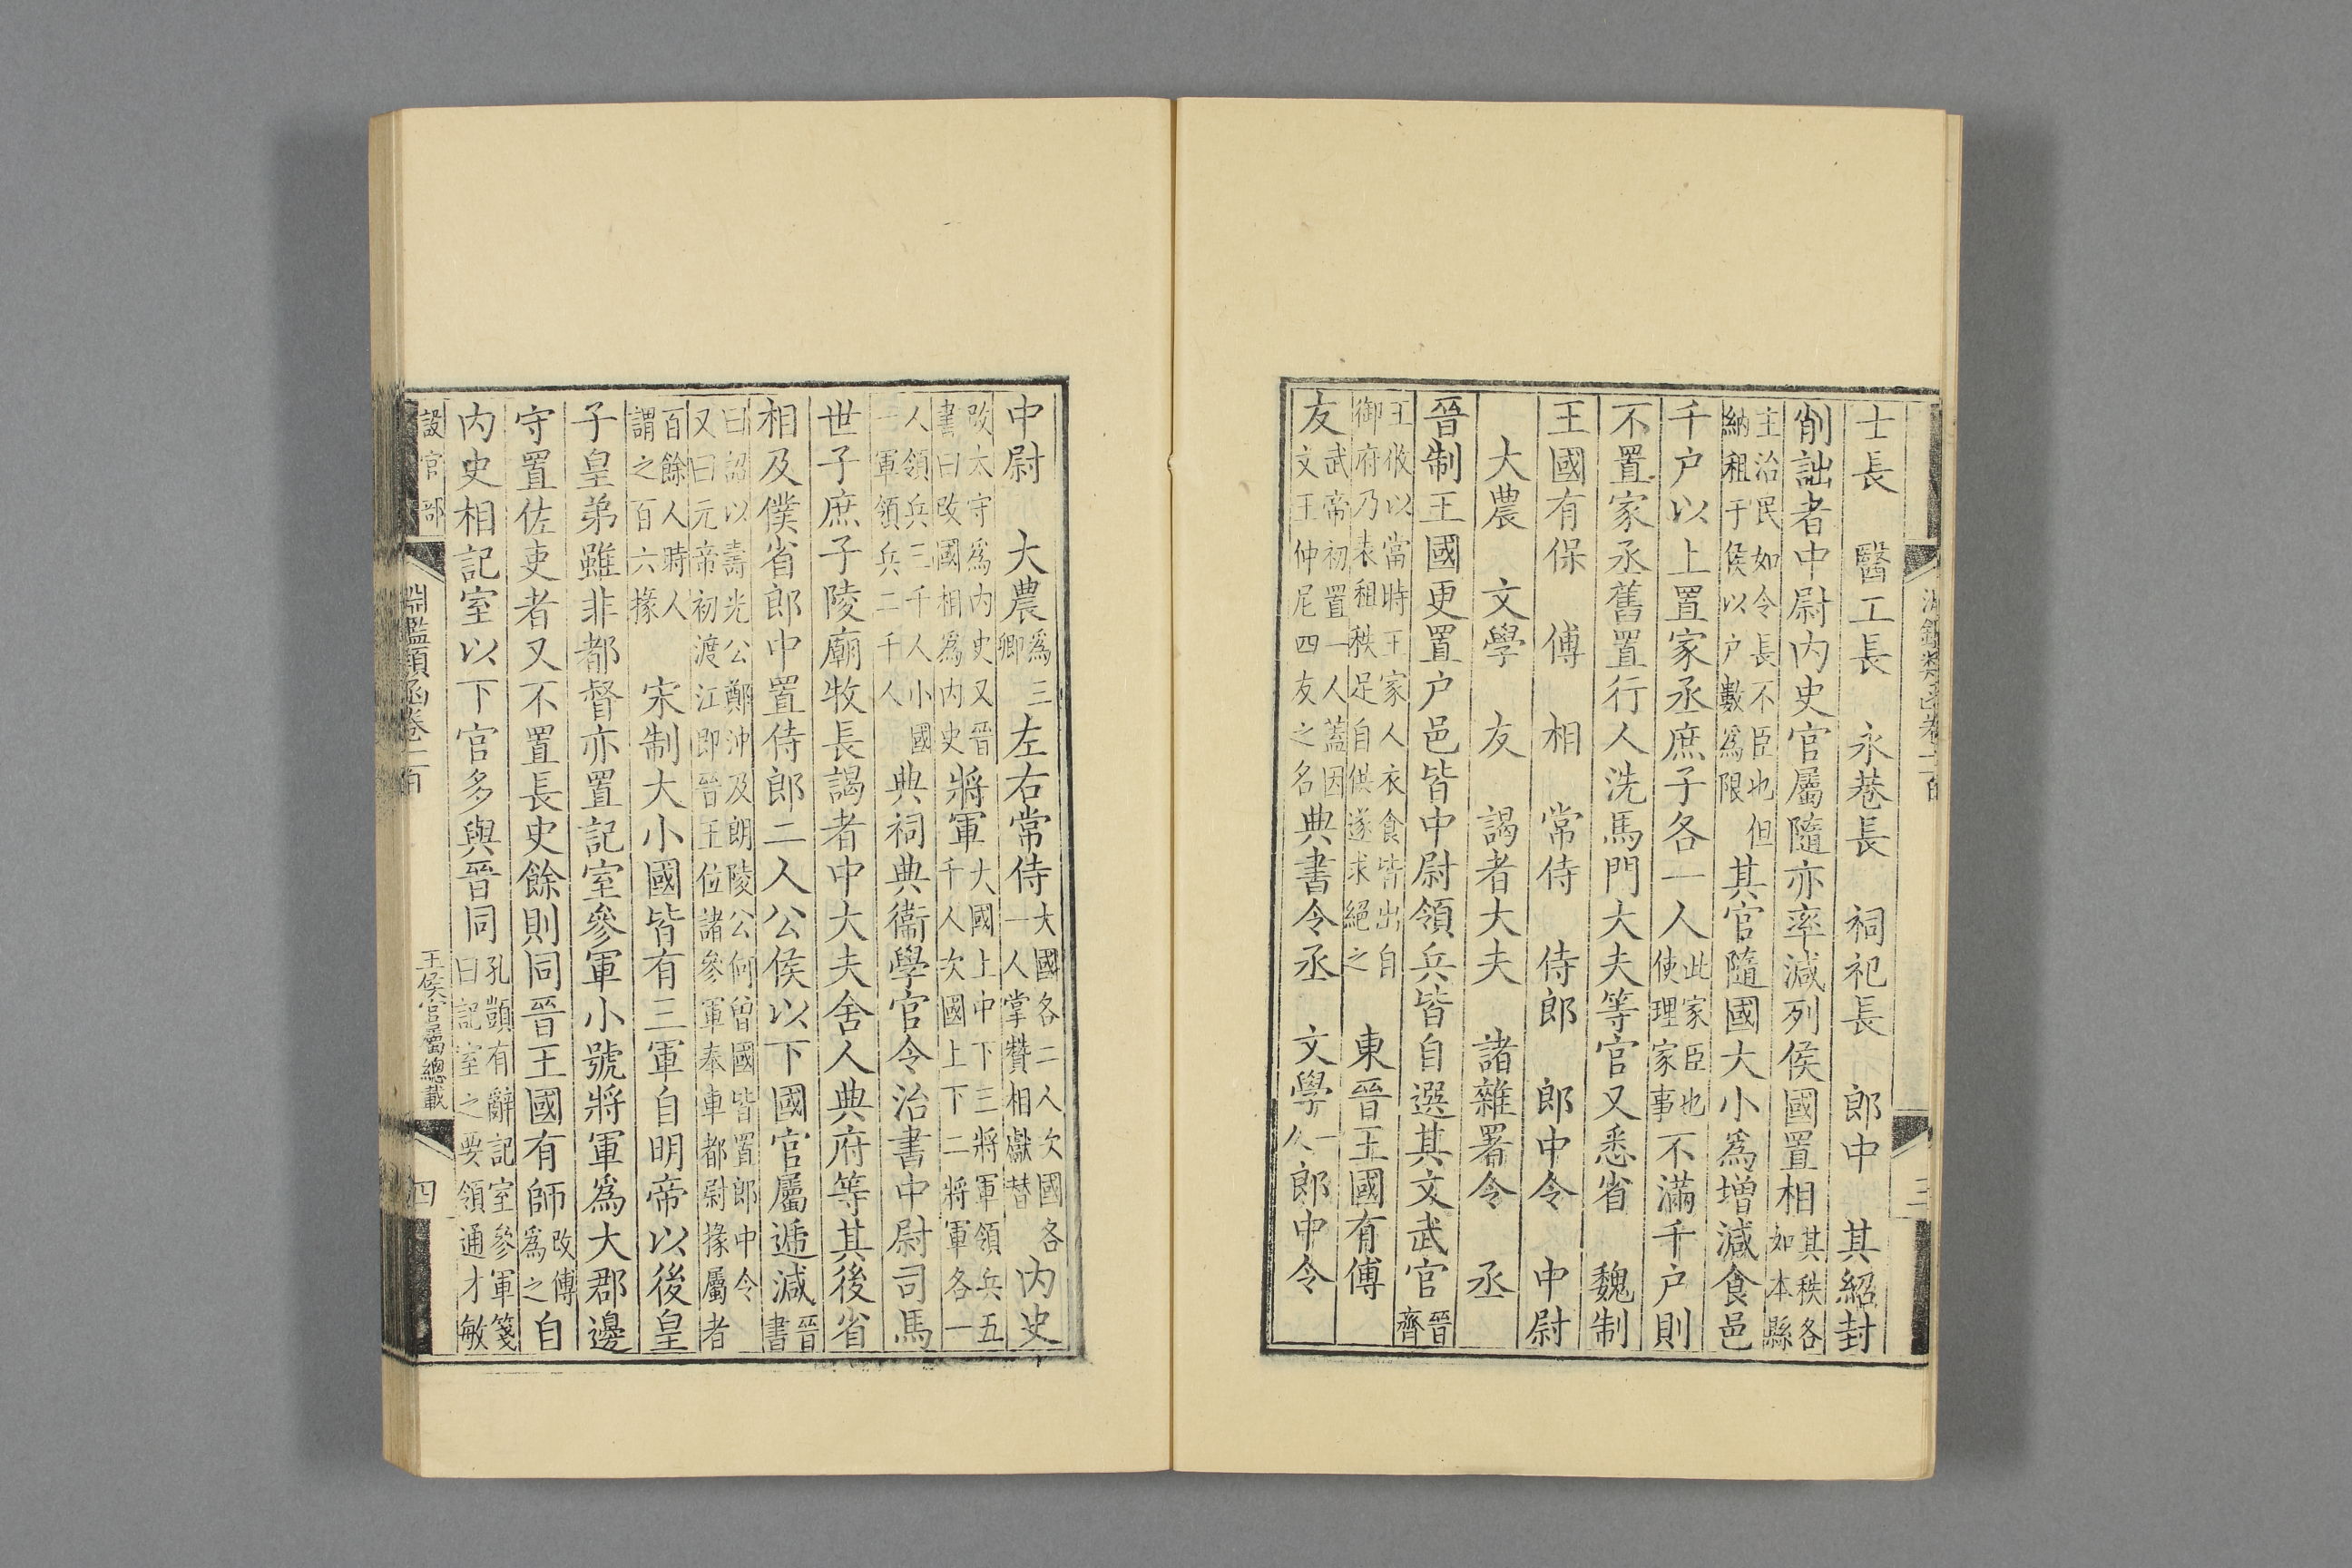 士長　醫工長　永巷長　祠祀長　郎中　其紹封
削詘者中尉內史官屬隨亦率減列侯國置相其秩各如本縣
主治民如令長不臣也但納租于侯以户數爲限其官隨國大小爲增減食邑
千户以上置家丞庶子各一人此家臣也使理家事不滿千户則
不置家丞舊置行人洗馬門大夫等官又悉省　魏制
王國有保　傅　相　常侍　侍郎　郎中令　中尉
大農　文學　友　謁者大夫　諸雜署令　丞
晉制王國更置户邑皆中尉領兵皆自選其文武官晉齊
王攸以當時王家人衣食皆出自御府乃表租秩足自供遂求絕之　東晉王國有傅
友武帝初置一人蓋因文王仲尼四友之名典書令丞　文學一人郎中令
中尉　大農爲三卿左右常侍大國各二人次國各一人掌贊相獻替內史
改太守爲內史又晉書曰改國相爲內史將軍大國上中下三將軍領兵五千人次國上下二將軍各一
人領兵三千人小國一軍領兵二千人典祠典衞學官令治書中尉司馬
世子庶子陵廟牧長謁者中大夫舍人典府等其後省
相及僕省郎中置侍郎二人公侯以下國官屬遞減晉書
曰詔以壽光公鄭沖及朗陵公何曾國皆置郎中令又曰元帝初渡江即晉王位諸參軍奉車都尉掾屬者
百餘人時人謂之百六掾　宋制大小國皆有三軍自明帝以後皇
子皇弟雖非都督亦置記室參軍小號將軍爲大郡邊
守置佐吏者又不置長史餘則同晉王國有師改傅爲之自
內史相記室以下官多與晉同孔顗有辭記室參軍箋曰記室之要領通才敏
設官部　淵鑑類函卷一百　王侯官屬總載　四